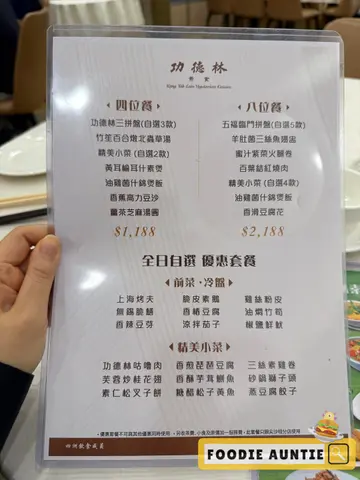 功德林
素食
Kung Tak Lam Vegetarian Cuisine
四位餐
功德林三拼盤(自選3款)
竹笙百合燉北蟲草湯
精美小菜 (自選2款)
黃耳崧耳什素煲
油雞菌什錦煲飯
香蕉高力豆沙
薑茶芝麻湯圓
$1,188
八位餐
五福臨門拼盤(自選5款)
羊肚菌三絲魚翅盅
蜜汁紫菜火腿卷
百葉結紅燒肉
精美小菜 (自選4款)
油雞菌什錦煲飯
香滑豆腐花
$2,188
全日自選 優惠套餐
前菜·冷盤
上海烤夫 脆皮素鵝 雞絲粉皮
無錫脆鱔 香椿豆腐 油燜竹筍
香辣豆芽 涼拌茄子 椒鹽鮮魷
精美小菜
功德林咕嚕肉 香煎琵琶豆腐 三絲素雞卷
芙蓉炒桂花翅 香酥芋茸鯽魚 砂鍋獅子頭
素仁松叉子餅 糖醋松子黃魚 蒸豆腐餃子
四洲飲食成員
FOODIE AUNTIE